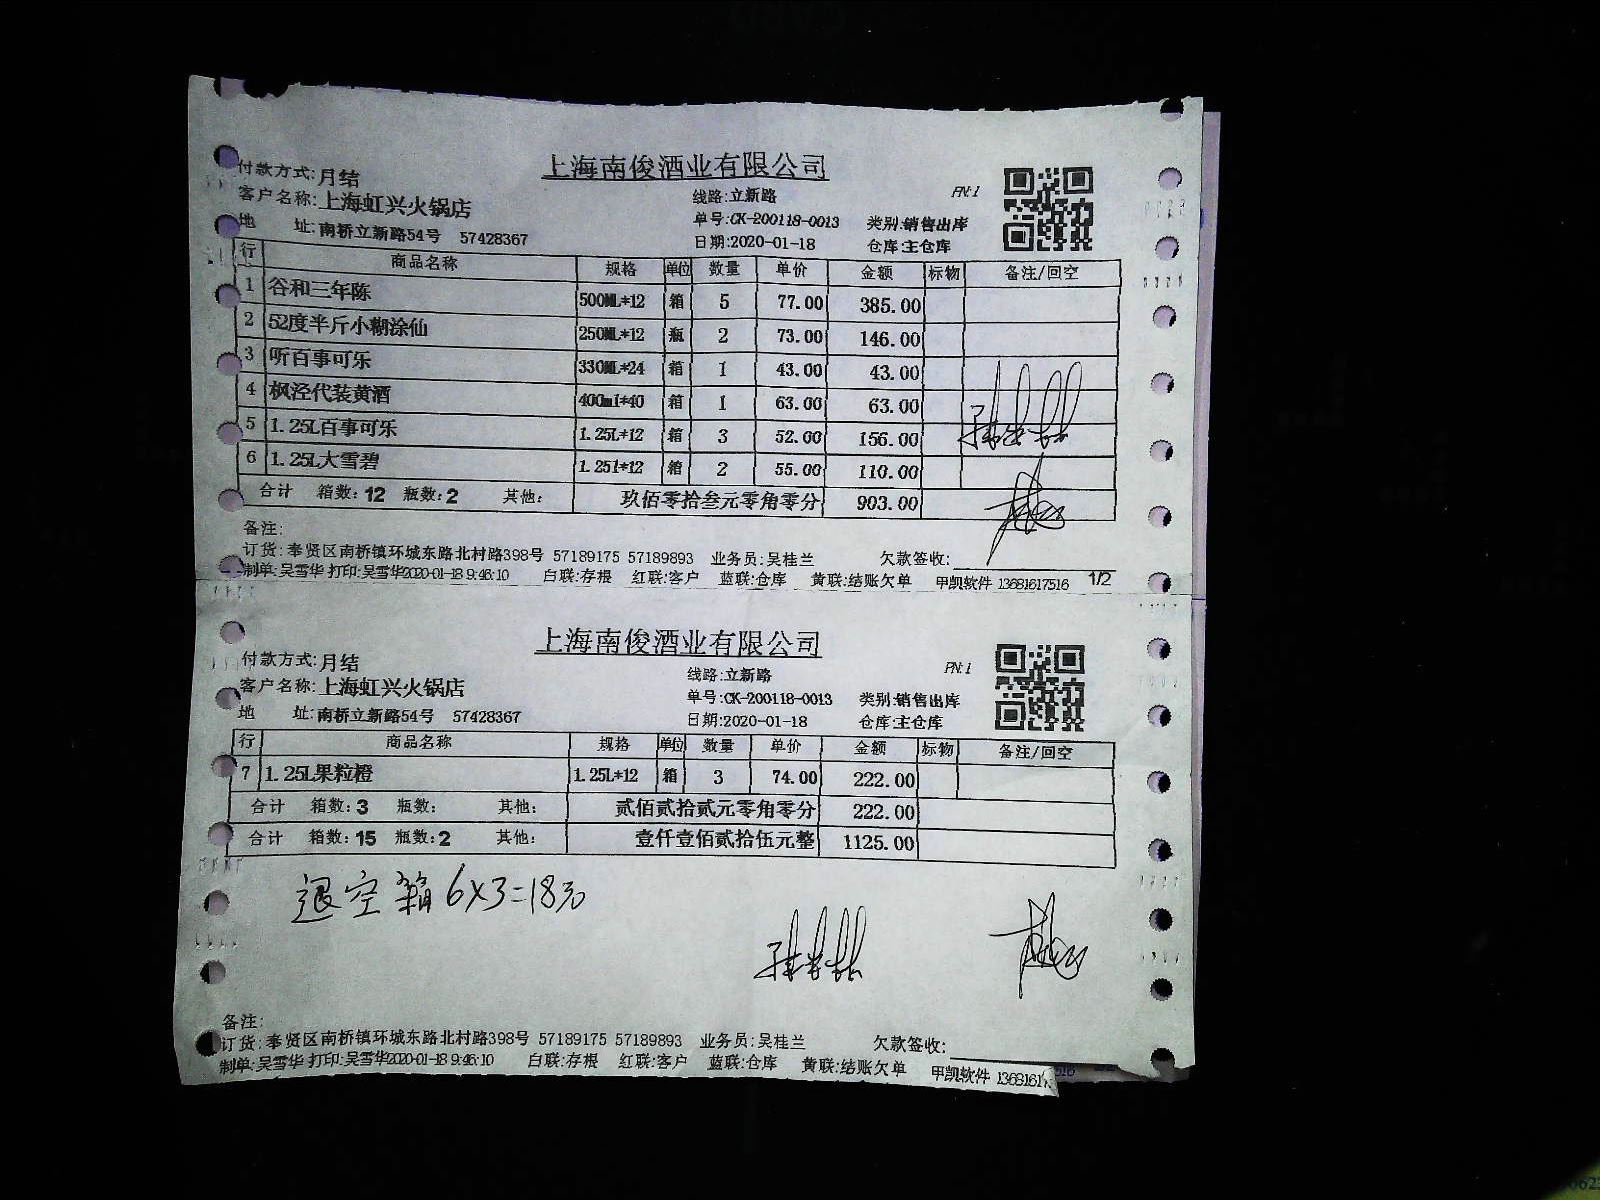 上海南俊酒业有限公司
付款方式:月结 线路:立新路 PN:1
客户名称:上海虹兴火锅店 单号:CK-200118-0013 类别:销售出库
地 址:南桥立新路54号 57428367 日期:2020-01-18 仓库:主仓库
行 商品名称 规格 单位 数量 单价 金额 标物 备注/回空
1 谷和三年陈 500ML*12 箱 5 77.00 385.00
2 52度半斤小糊涂仙 250ML*12 瓶 2 73.00 146.00
3 听百事可乐 330ML*24 箱 1 43.00 43.00
4 枫泾代装黄酒 400ml*40 箱 1 63.00 63.00
5 1.25L百事可乐 1.25L*12 箱 3 52.00 156.00
6 1.25L大雪碧 1.25l*12 箱 2 55.00 110.00
合计 箱数:12 瓶数:2 其他: 玖佰零拾叁元零角零分 903.00
备注:
订货:奉贤区南桥镇环城东路北村路398号 57189175 57189893 业务员:吴桂兰 欠款签收:
制单:吴雪华 打印:吴雪华2020-01-18 9:46:10 白联:存根 红联:客户 蓝联:仓库 黄联:结账欠单 甲凯软件 13681617516 1/2
上海南俊酒业有限公司
付款方式:月结 线路:立新路 PN:1
客户名称:上海虹兴火锅店 单号:CK-200118-0013 类别:销售出库
地 址:南桥立新路54号 57428367 日期:2020-01-18 仓库:主仓库
行 商品名称 规格 单位 数量 单价 金额 标物 备注/回空
7 1.25L果粒橙 1.25L*12 箱 3 74.00 222.00
合计 箱数:3 瓶数: 其他: 贰佰贰拾贰元零角零分 222.00
合计 箱数:15 瓶数:2 其他: 壹仟壹佰贰拾伍元整 1125.00
退空箱6×3=18元
备注:
订货:奉贤区南桥镇环城东路北村路398号 57189175 57189893 业务员:吴桂兰 欠款签收:
制单:吴雪华 打印:吴雪华2020-01-18 9:46:10 白联:存根 红联:客户 蓝联:仓库 黄联:结账欠单 甲凯软件 1368161